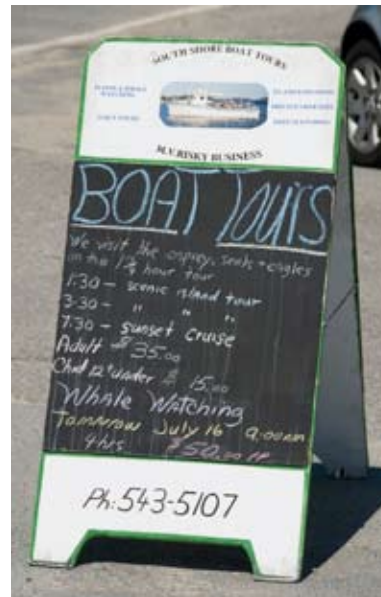 SOUTH SHORE BOAT TOURS
M.V. RISKY BUSINESS
BOAT TOURS
We visit the osprey, seals + eagles
on the 1 3/4 hour tour
1:30 - scenic island tour
3:30 - " " "
7:30 - sunset cruise
Adult $35.00
Child 12 + under $ 15.00
Whale Watching
Tomorrow July 16 9:00am
4 hrs $50.00
Ph: 543-5107